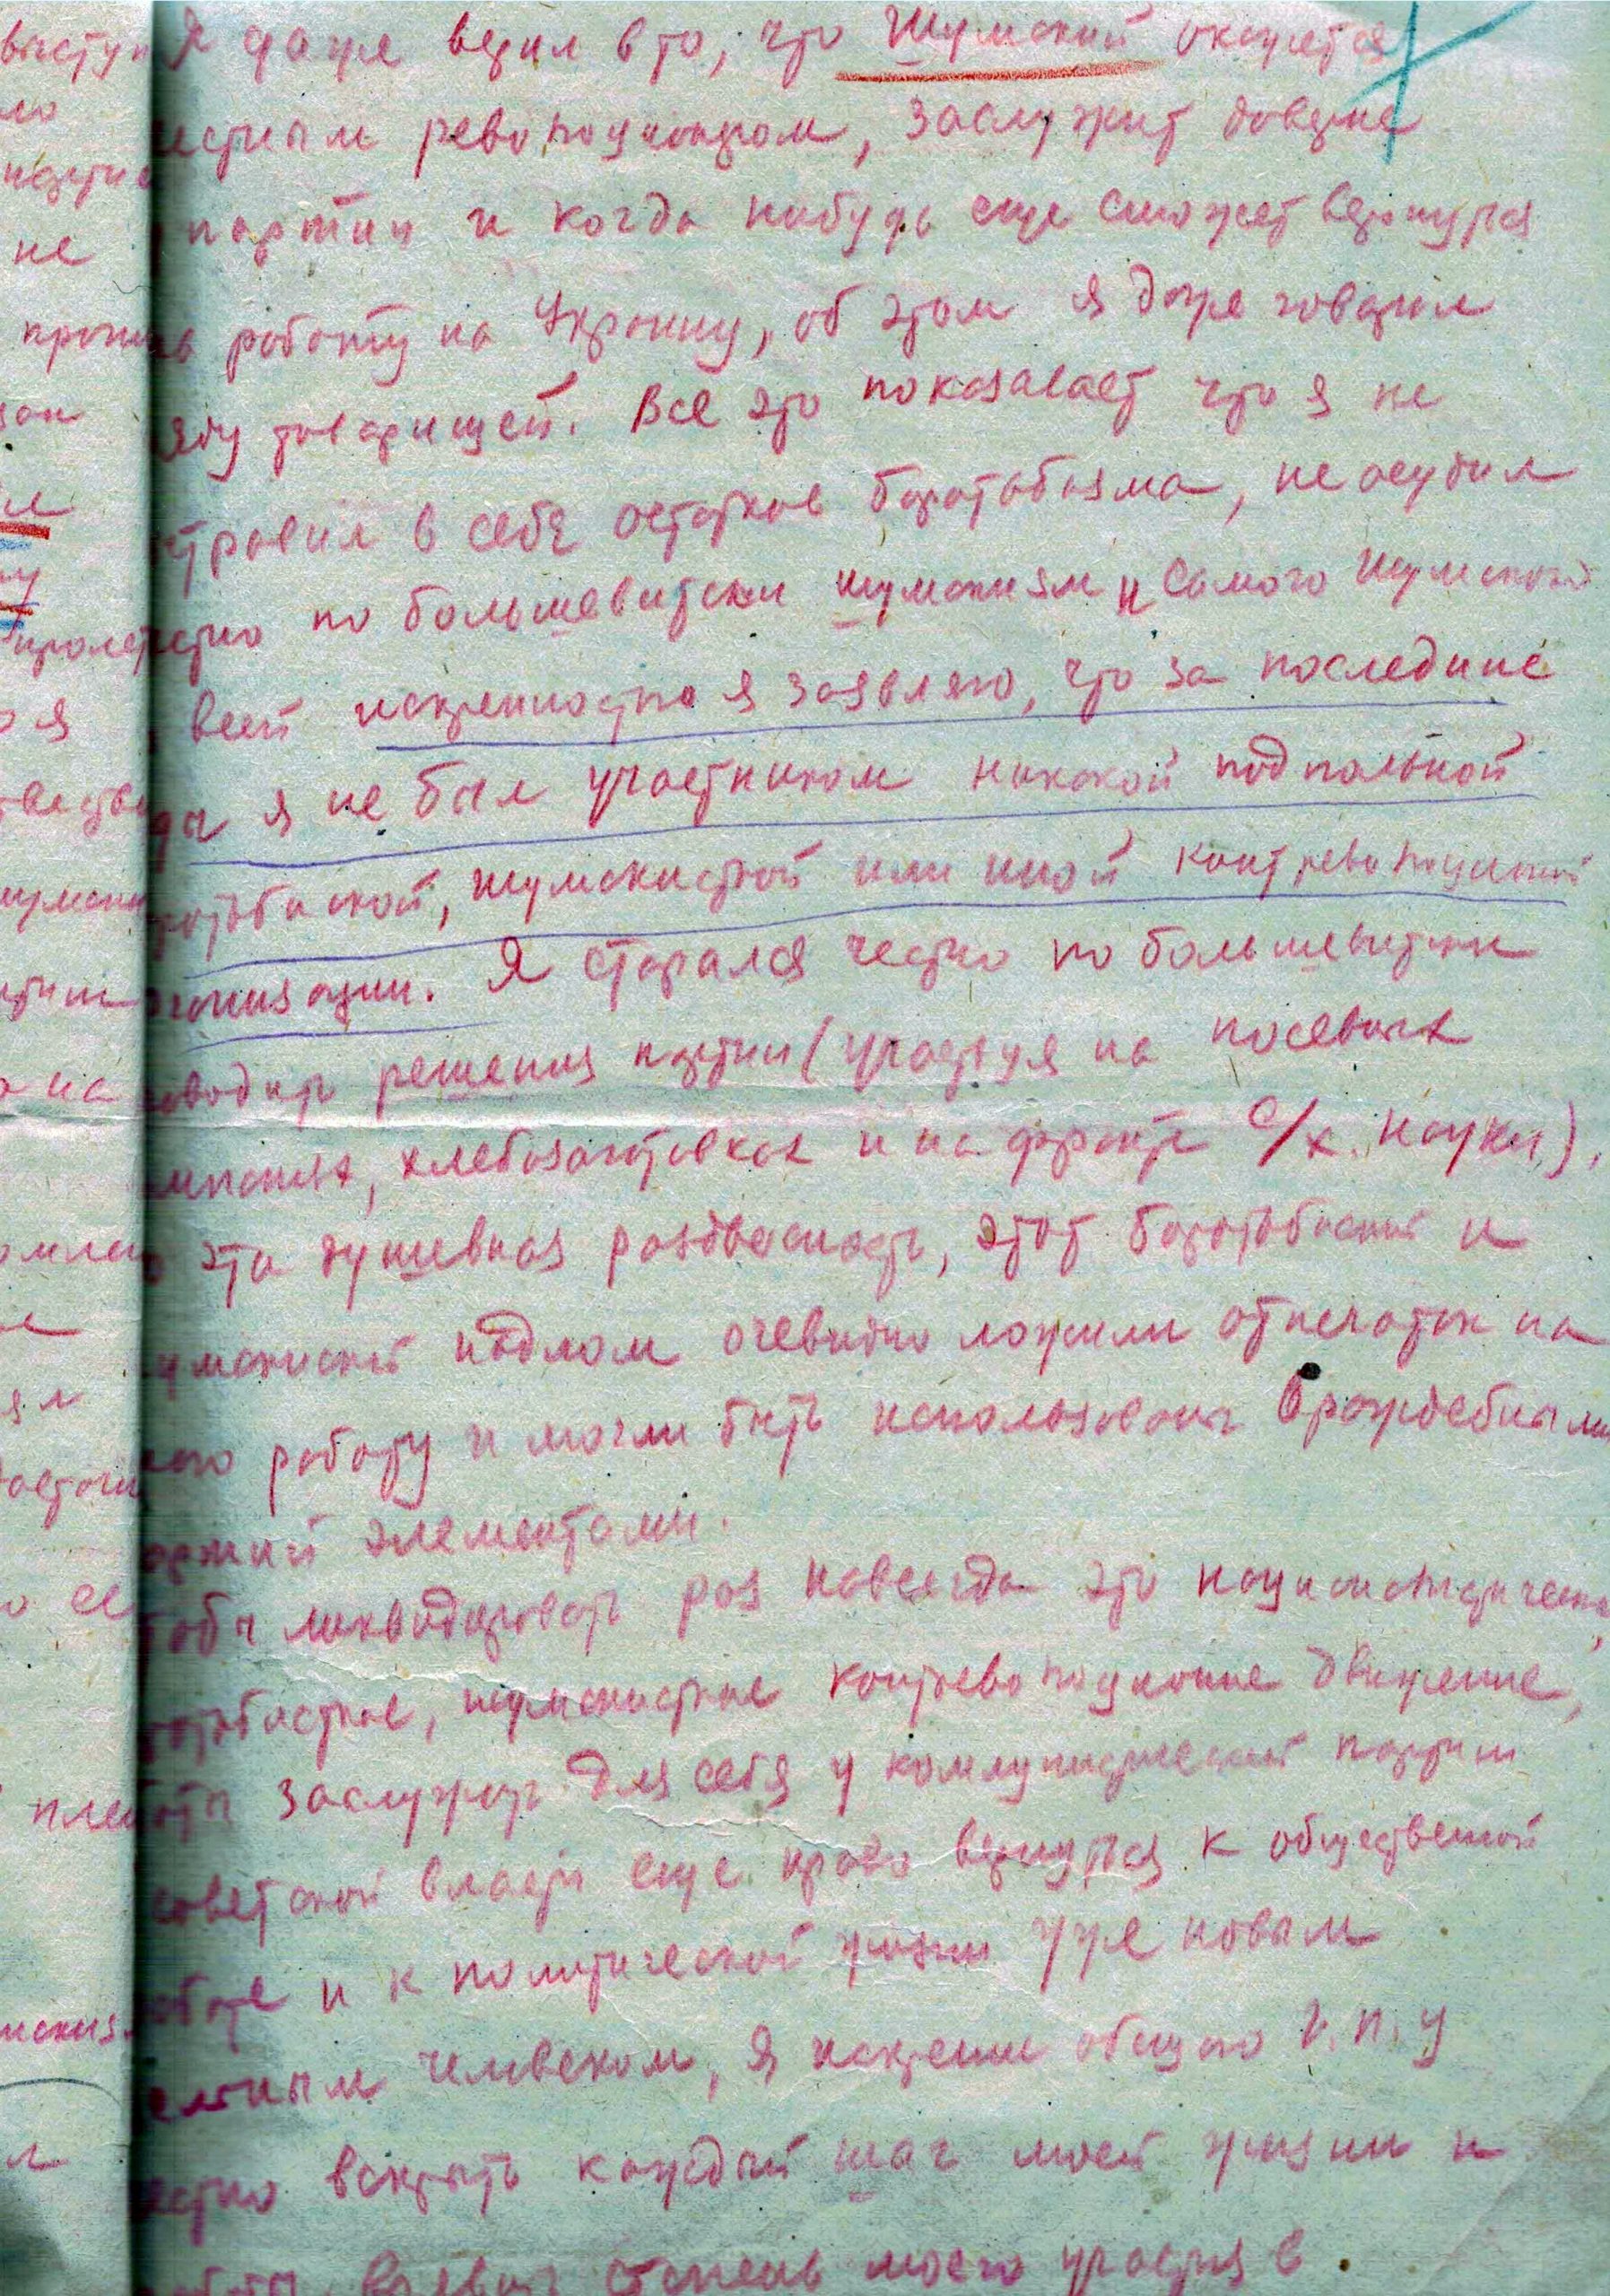 Я даже верил в то, что Шумский окажется
естным революционером, заслужит доверие
партии и когда нибудь еще сможет вернутся
работу на Украину, об этом я даже говорил
яду товарищей. Все это показавает что я не
травил в себе остатков боротьбизма, не осудил
естно по большевитски шумскизм и самого Шумского
всей искренностью я заявляю, что за последние
ды я не был участником никакой подпольной
ротьбиской, шумскистской или иной контрреволюционой
ганизации. Я старался честно по большевитски
оводить решения партии (участвуя на посевных
мпаниях, хлебозаготовках и на фронте с/х. науки),
эта душевная раздвоеность, этот боротьбиский и
умскиский надлом очевидно ложили отпечаток на
работу и могли быть использованы враждебными
элементами.
тобы ликвидировать раз навсегда это националистическое,
ротьбистское, шумскистское контрреволюционне движение,
заслужить для себя у коммунистической партии
советской власти еще право вернутся к общественой
аботе и к политической жизни уже новым
естным человеком, я искренне обещаю Г.П.У
естно вскрыть каждый шаг моей жизни и
степень моего участия в